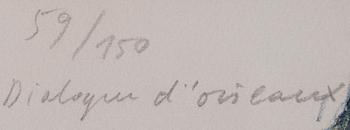 59/150
Dialogue d'oiseaux